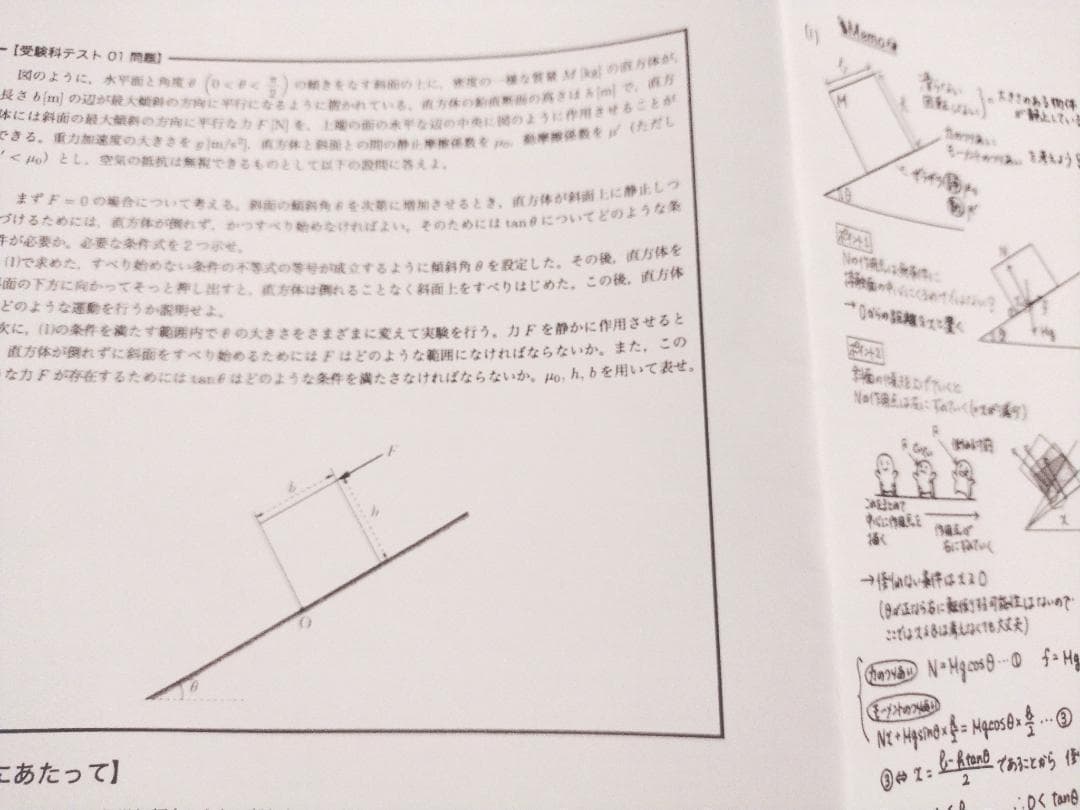 【受験科テスト 01 問題】
図のように、水平面と角度 θ (0 < θ < π/2) の傾きをなす斜面の上に、密度の一様な質量 M [kg] の直方体が、
長さ b[m] の辺が最大傾斜の方向に平行になるように置かれている。直方体の鉛直断面の高さは h[m] で、直方
体には斜面の最大傾斜の方向に平行な力 F [N] を、上端の面の水平な辺の中央に図のように作用させることが
できる。重力加速度の大きさを g[m/s²]、直方体と斜面との間の静止摩擦係数を μ₀、動摩擦係数を μ′（ただし
′ < μ₀）とし、空気の抵抗は無視できるものとして以下の設問に答えよ。
まず F = 0 の場合について考える。斜面の傾斜角 θ を次第に増加させるとき、直方体が斜面上に静止しつ
づけるためには、直方体が倒れず、かつすべり始めなければよい。そのためには tan θ についてどのような条
件が必要か。必要な条件式を 2 つ示せ。
(1)で求めた、すべり始めない条件の不等式の等号が成立するように傾斜角 θ を設定した。その後、直方体を
面の下方に向かってそっと押し出すと、直方体は倒れることなく斜面上をすべりはじめた。この後、直方体
どのような運動を行うか説明せよ。
次に、(1)の条件を満たす範囲内で θ の大きさをさまざまに変えて実験を行う。力 F を静かに作用させると
直方体が倒れずに斜面をすべり始めるためには F はどのような範囲になければならないか。また、この
な力 F が存在するためには tan θ はどのような条件を満たさなければならないか。μ₀, h, b を用いて表せ。
F
b
h
O
θ
にあたって】
(1) Memo
M
滑らない
回転しない
＝大きさのある物体
が静止している
力のつりあい
モーメントのつりあい
を考えよう
θ
ポイント1
Nの作用点は無条件に
接触面の中心にくるわけではない?
→Oからの距離をxと置く
N
Mg
θ
ポイント2
斜面の傾きを上げていくと
Nの作用点は左にずれていく(xが減少)
中心に作用点を
描く
作用点が
左にずれていく
→倒れない条件は x≧0
力のつりあい N=Mgcosθ…① f=Mg
モーメントのつりあい
Nx+Mgsinθ×h/2=Mgcosθ×b/2…③
③⇔ x=(b-htanθ)/2 であることから 倒
tanθ